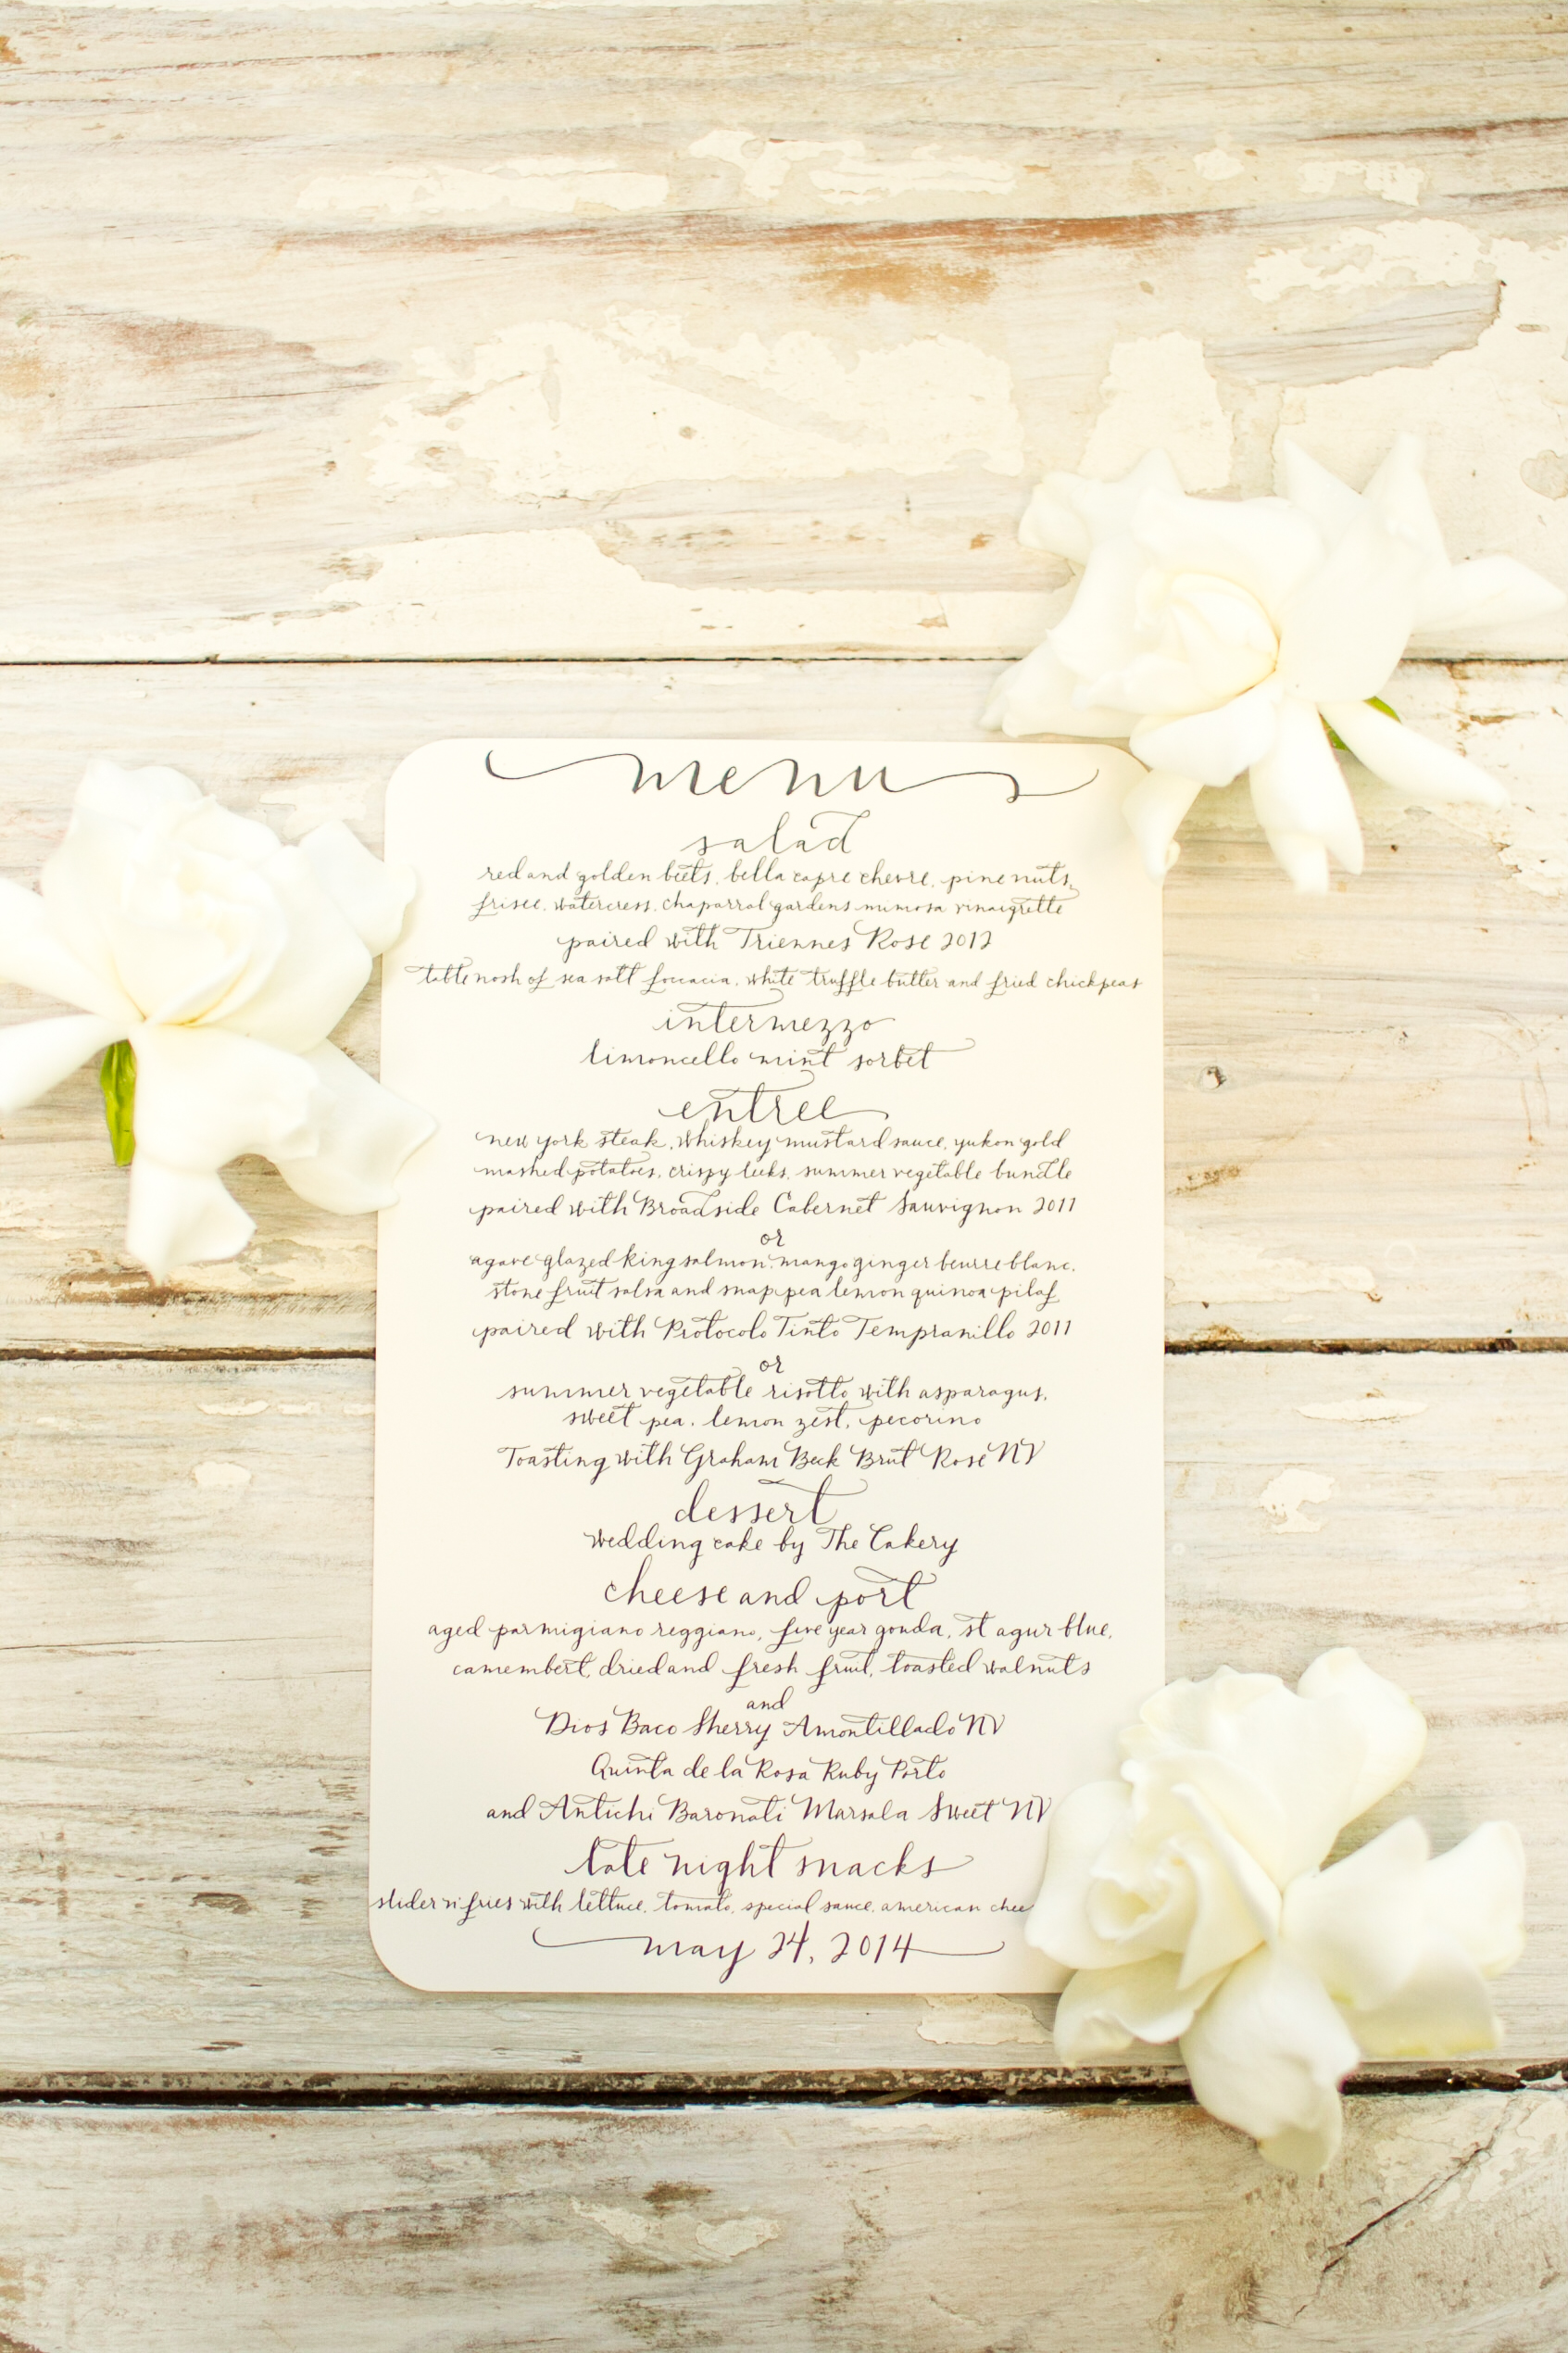 menu
salad
red and golden beets, bella capre chevre, pine nuts,
frisee, watercress, chaparral gardens mimosa vinaigrette
paired with Triennes Rose 2012
table nosh of sea salt foccacia, white truffle butter and fried chickpeas
intermezzo
limoncello mint sorbet
entree
new york steak, whiskey mustard sauce, yukon gold
mashed potatoes, crispy leeks, summer vegetable bundle
paired with Broadside Cabernet Sauvignon 2011
or
agave glazed king salmon, mango ginger beurre blanc,
stone fruit salsa and snap pea lemon quinoa pilaf
paired with Protocolo Tinto Tempranillo 2011
or
summer vegetable risotto with asparagus,
sweet pea, lemon zest, pecorino
Toasting with Graham Beck Brut Rose NV
dessert
wedding cake by The Cakery
cheese and port
aged parmigiano reggiano, five year gouda, st agur blue,
camembert, dried and fresh fruit, toasted walnuts
and
Dios Baco Sherry Amontillado NV
Quinta de la Rosa Ruby Porto
and Antichi Baronati Marsala Sweet NV
late night snacks
slider n fries with lettuce, tomato, special sauce, american chee
may 24, 2014